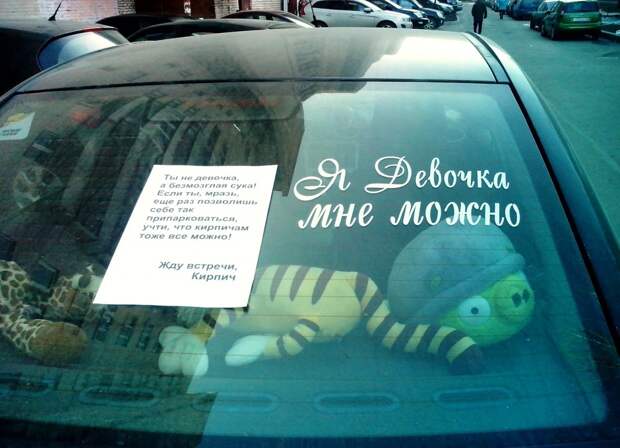 Ты не девочка,
а безмозглая сука!
Если ты, мразь,
еще раз позволишь
себе так
припарковаться,
учти, что кирпичам
тоже все можно!
Жду встречи,
Кирпич
Я Девочка
мне можно